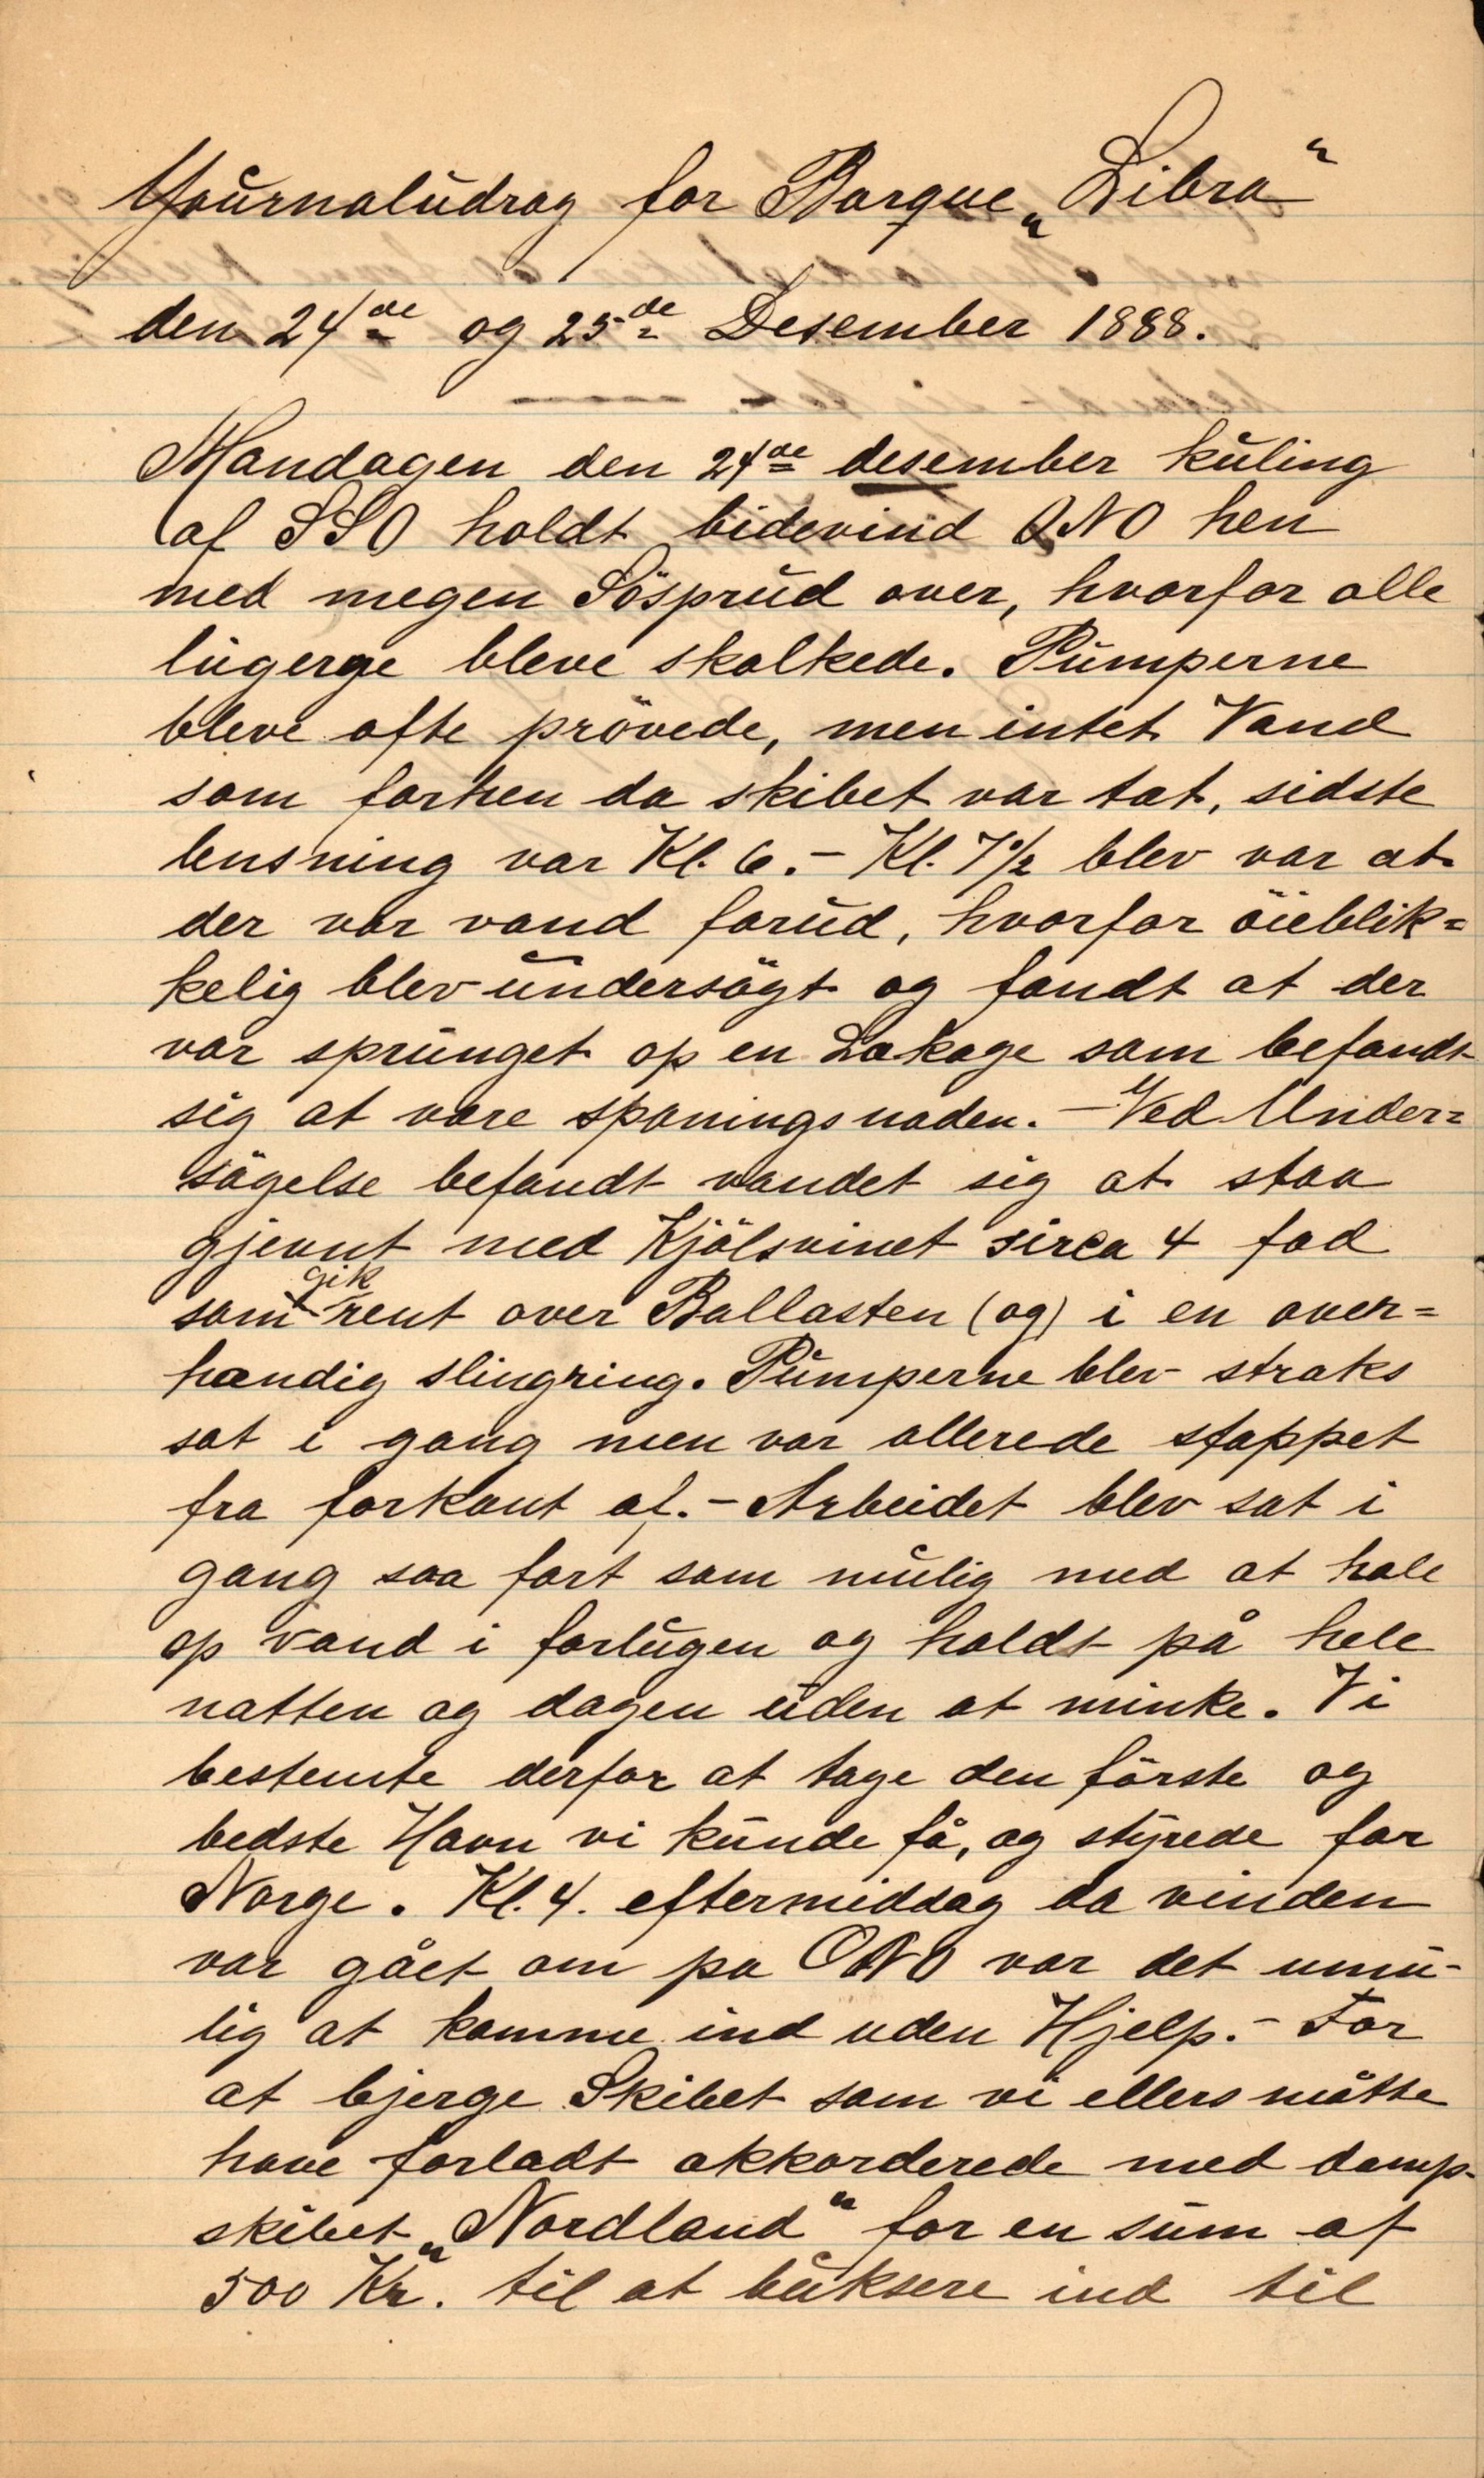 Journaludrag for Barque „Libra“
den 24de og 25de Desember 1888.
Mandagen den 24de desember kuling
af SSO holdt bidevind ONO hen
med megen Sösprud over, hvorfor alle
lugerge bleve skalkede. Pumperne
bleve ofte prövede, men intet Vand
som forhen da skibet var tæt, sidste
lensning var Kl. 6. – Kl. 7½ blev var at
der var vand forud, hvorfor öieblik=
kelig blev undersögt og fandt at der
var sprunget op en Lækage som befandt
sig at være spaningsnaden. – Ved Under=
sögelse befandt vandet sig at staa
gjevnt med Kjölsvinet sirca 4 fod
som gik rent over Ballasten (og) i en over=
hændig slingring. Pumperne blev straks
sat i gang men var allerede stoppet
fra forkant af. – Arbeidet blev sat i
gang saa fort som mulig med at hale
op vand i forlugen og holdt på hele
natten og dagen uden at minke. Vi
bestemte derfor at tage den förste og
bedste Havn vi kunde få, og styrede for
Norge. Kl. 4. eftermiddag da vinden
var gået om pa ONO var det umu-
lig at komme ind uden Hjelp. – For
at bjerge Skibet som vi ellers måtte
have forladt akkorderede med damp-
skibet „Nordland“ for en sum af
500 Kr. til at buksere ind til